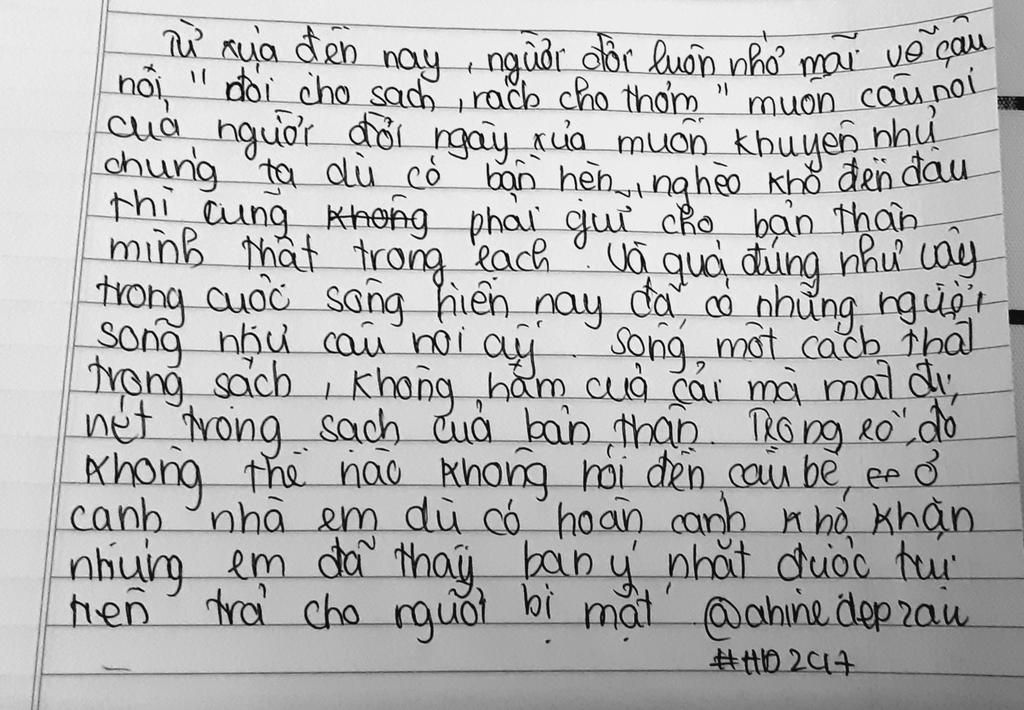 Từ xưa đến nay, người đời luôn nhớ mãi về câu
nói, " đói cho sạch, rách cho thơm " muôn câu nói
của người đời ngày xưa muốn khuyên nhủ
chúng ta dù có bần hèn, nghèo khổ đến đâu
thì cũng không phải giữ cho bản thân
mình thật trong sạch. Và quả đúng như vậy
trong cuộc sống hiện nay đã có những người
sống như câu nói ấy. Sống một cách thật
trong sạch, không ham của cải mà mất đi
nét trong sạch của bản thân. Trong số đó
không thể nào không nói đến cậu bé ở
cạnh nhà em dù có hoàn cảnh khó khăn
nhưng em đã thấy bạn ý nhặt được túi
tiền trả cho người bị mất @ahinedepzau
#HD2CI7